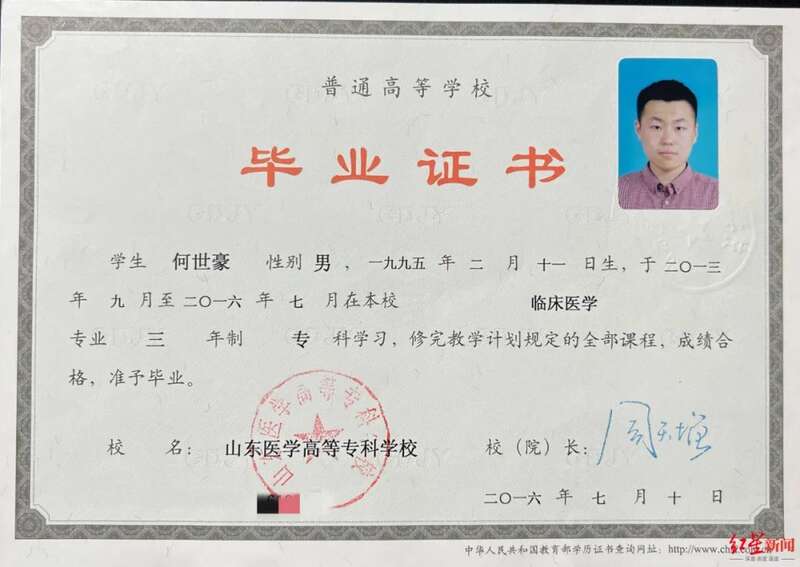 普通高等学校
毕业证书
学生 何世豪 性别 男 ，一九九五 年 二 月 十一 日生，于 二〇一三
年 九 月至 二〇一六 年 七 月在本校 临床医学
专业 三 年制 专 科学习，修完教学计划规定的全部课程，成绩合
格，准予毕业。
山东医学高等专科学校
校 名： 山东医学高等专科学校 校（院）长：
二〇一六 年 七 月 十 日
中华人民共和国教育部学历证书查询网址：http://www.ch
红星新闻